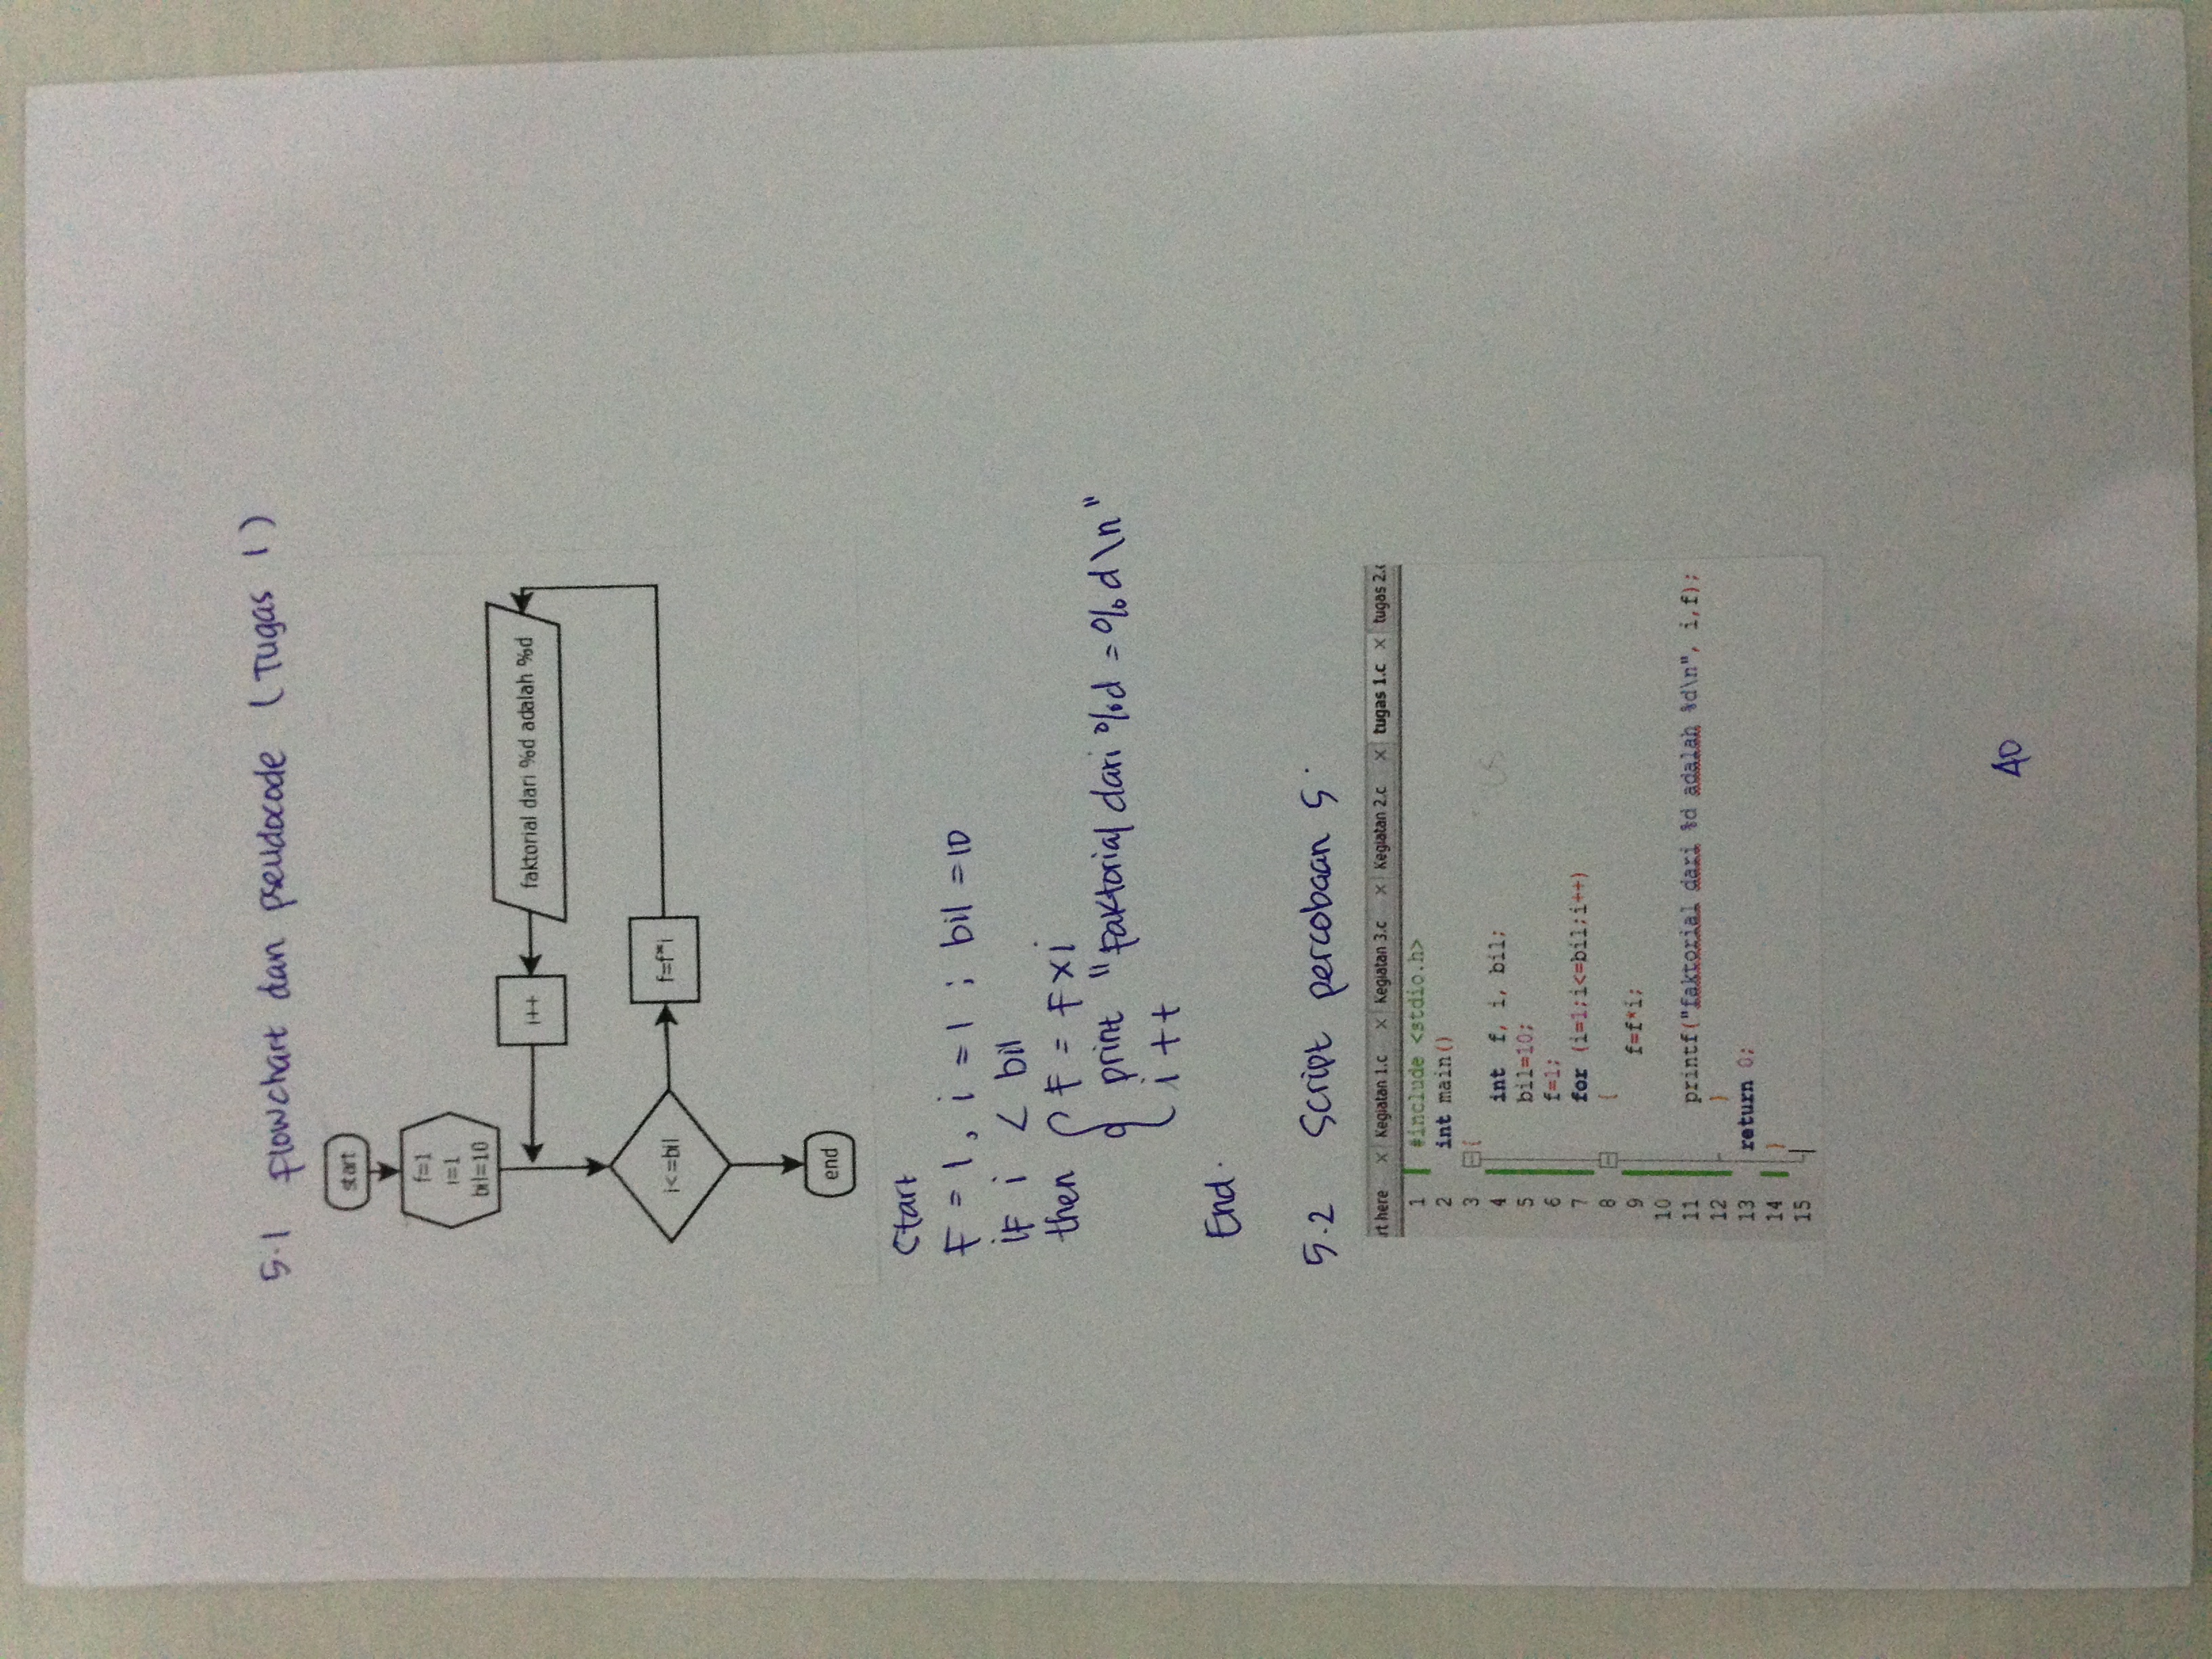 5.1 Flowchart dan pseudocode (Tugas 1)
start
f=1
i=1
bil=10
i++
faktorial dari %d adalah %d
i<=bil
f=f*i
end
Start
F = 1, i = 1 ; bil = 10
if i < bil
then { F = F x i
print "Faktorial dari %d = %d \n"
i ++
End.
5.2 Script percobaan 5
rt here × Kegiatan 1.c × Kegiatan 3.c × Kegiatan 2.c × tugas 1.c × tugas 2.c
1 #include <stdio.h>
2 int main()
3 {
4 int f, i, bil;
5 bil=10;
6 f=1;
7 for (i=1;i<=bil;i++)
8 {
9 f=f*i;
10
11 printf("faktorial dari %d adalah %d\n", i,f);
12 }
13 return 0;
14 }
15
40